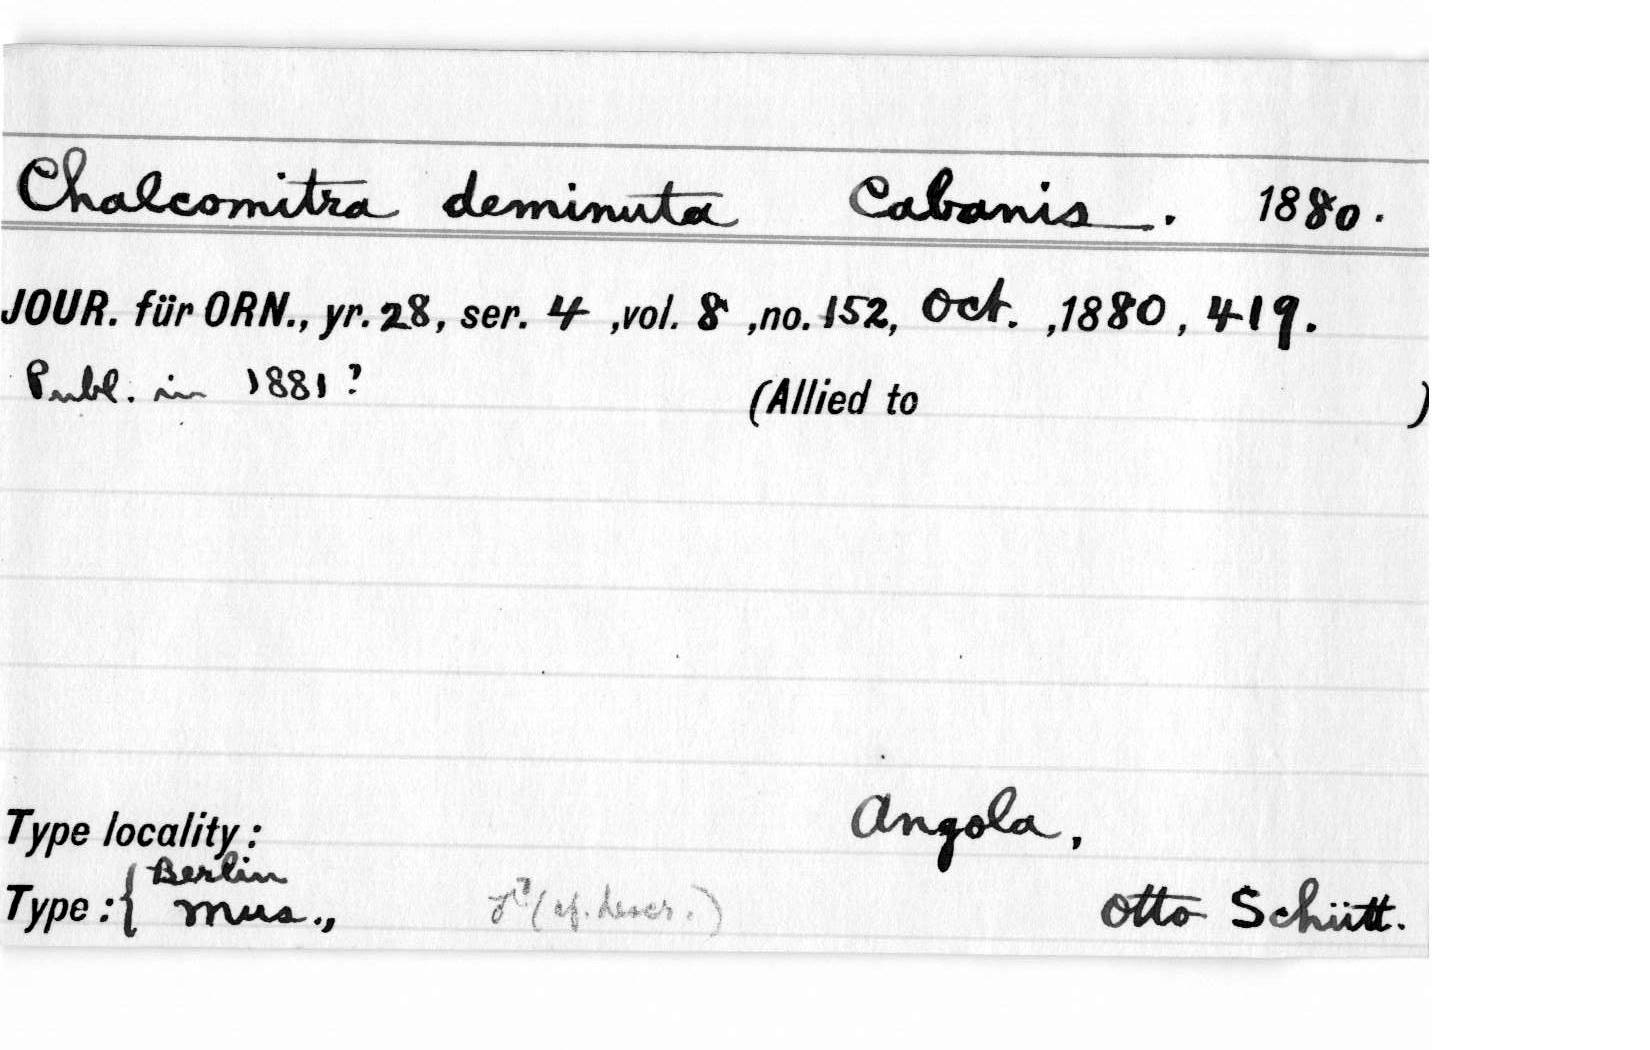 Chalcomitra deminuta Cabanis. 1880.
JOUR. für ORN., yr. 28, ser. 4 ,vol. 8 ,no. 152, Oct. ,1880, 419.
Publ. in 1881?
(Allied to )
Type locality: Angola,
Type: { Berlin Mus., (cf. descr.) Otto Schütt.